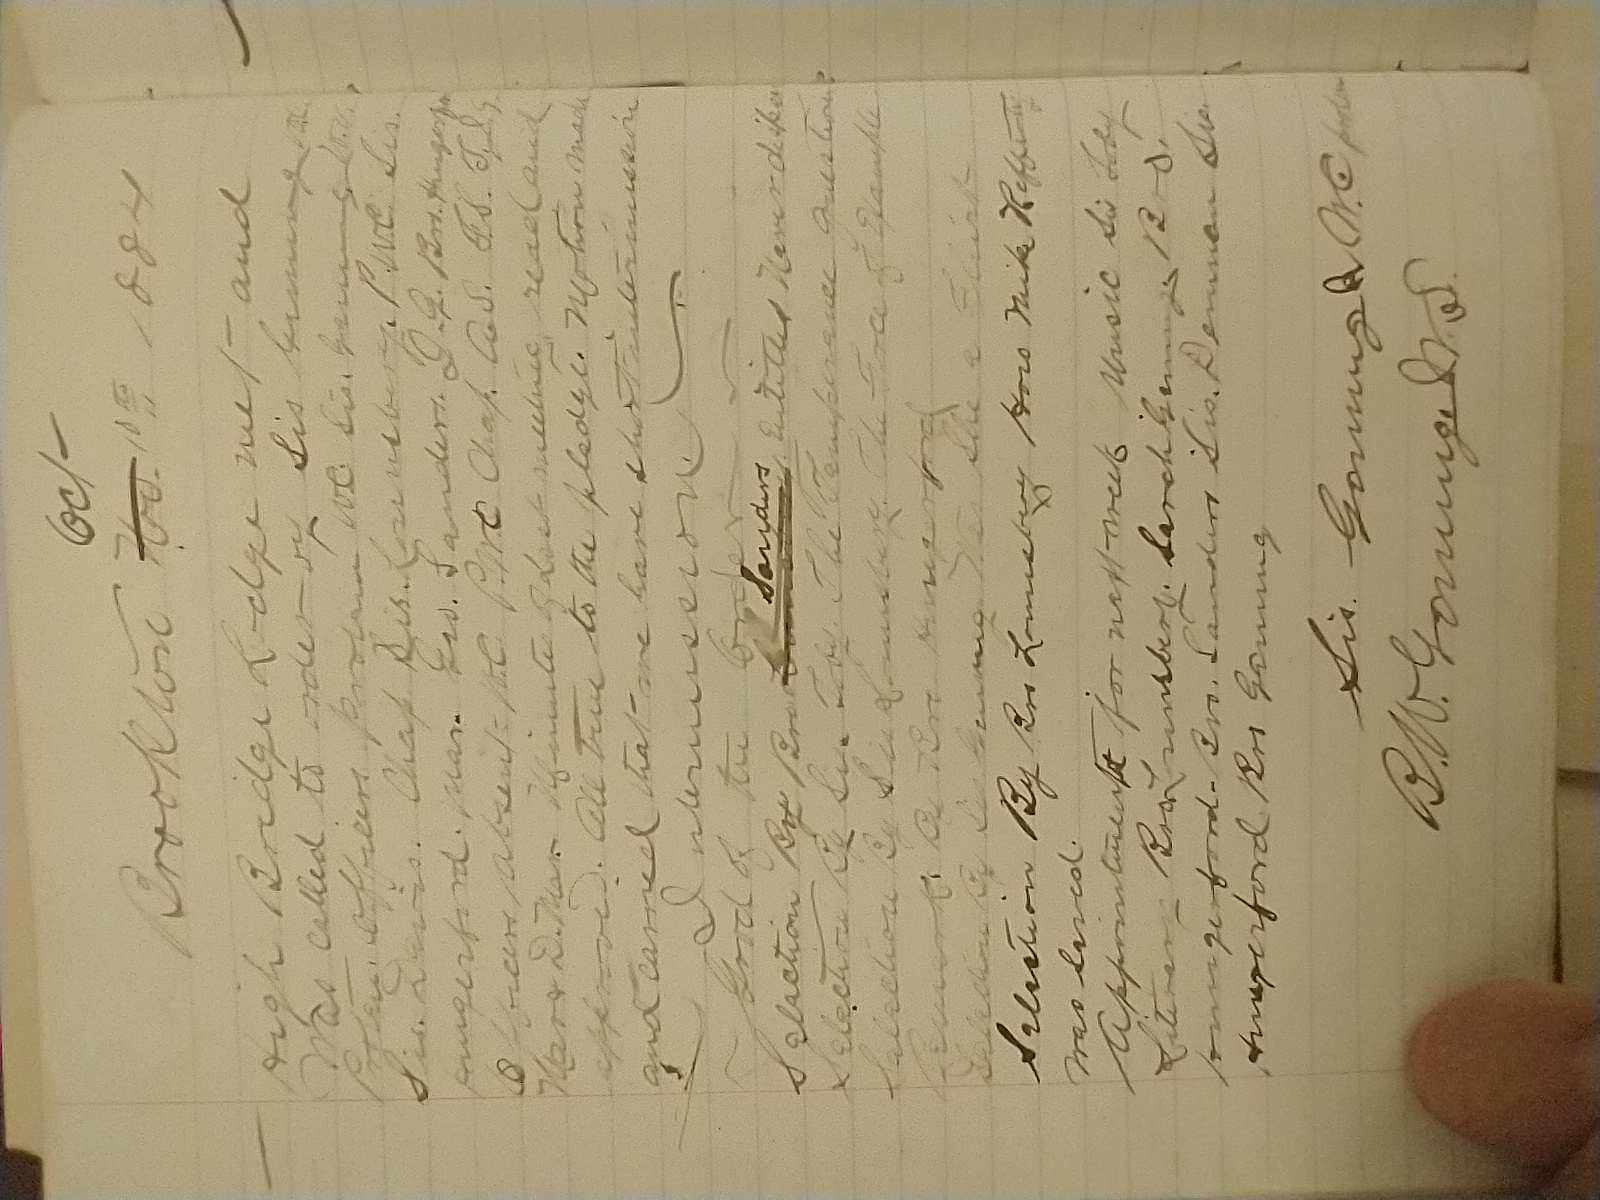 Oct
Brookton Nov. 10th 1884
High Bridge Lodge met and
was called to order by Sis Genung
Protem. Officers Protem WC. Sis. Genung
Sis. Davis. Chap Sis. Lounsbery. P.W.C. Sis.
Hungerford. Mar. Geo. Sanders. I.G. Bro. Hungerford
Officers absent W.C. P.W.C Chap. A.S. F.S. T.
Mar & D.Mar. Minutes of Last meeting read and
approved. All true to the pledge. Motion made
and carried that we have short intermission
Intermission
Good of the Order
Sanders
Selection By Bro Lounsbery. Entitled Never
Selection By Sis. Toby. The Temperance Question
Selection By Sis Lounsbery. The Force of Example
Remarks By Bro. Hungerford
Selection By Sis Genung. Was She a Flirt
Selection By Bro Lounsbery How Mike Rafferty
was Saved.
Appointment for next week Music Sis Toby
Literary Bro Lounsbery. Sarah Genung. Bro.
Hungerford. Bro. Sanders Sis. Denman Sis.
Hungerford Bro Genung
Sis. Genung W.C protem
B.W. Genung W.S.